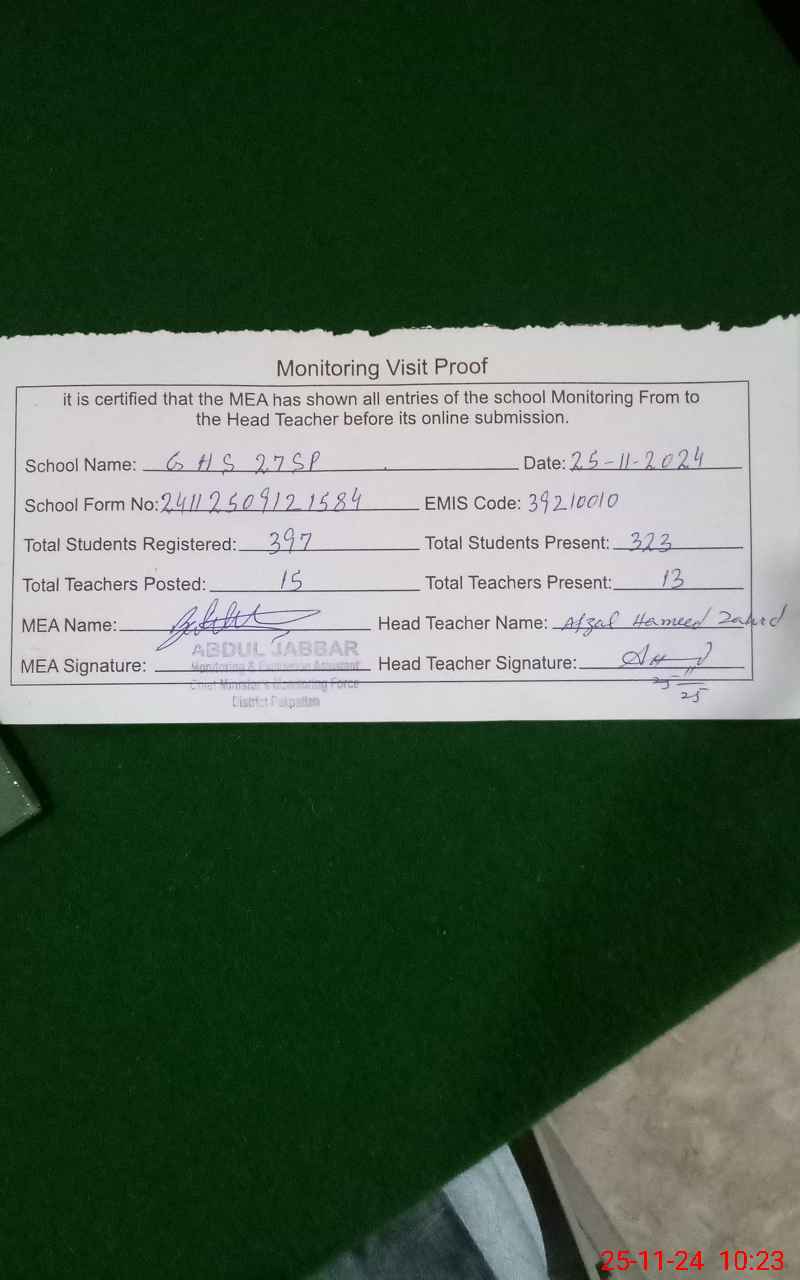 Monitoring Visit Proof
it is certified that the MEA has shown all entries of the school Monitoring From to
the Head Teacher before its online submission.
School Name: G H S 27 SP Date: 25-11-2024
School Form No: 24112509121584 EMIS Code: 39210010
Total Students Registered: 397 Total Students Present: 323
Total Teachers Posted: 15 Total Teachers Present: 13
MEA Name: Head Teacher Name: Afzal Hameed Zahid
ABDUL JABBAR
MEA Signature: Head Teacher Signature:
Monitoring & Evaluation Assistant
Chief Minister's Monitoring Force
District Pakpattan
25-11-24 10:23